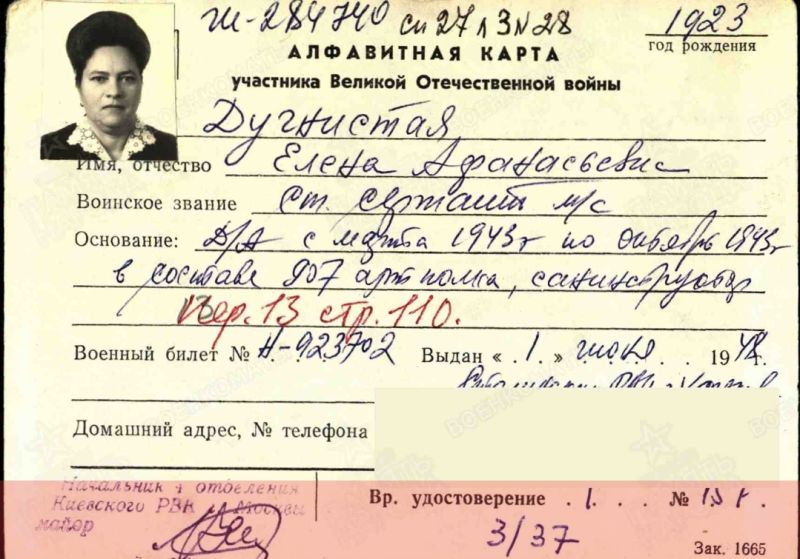 Ж-284740 сп 27 л 3 N 28
1923
год рождения
АЛФАВИТНАЯ КАРТА
участника Великой Отечественной войны
Дугнистая
Имя, отчество Елена Афанасьевна
Воинское звание Ст. сержант м/с
Основание: Д/А с марта 1943г по октябрь 1943г
в составе 907 артполка, санинструктор
Пер. 13 стр. 110.
Военный билет № Н-923702 Выдан « 1 » июня 1948г.
РВК
Домашний адрес, № телефона
Начальник 4 отделения
Киевского РВК г Москвы
майор
Вр. удостоверение 1 № 15
3/37
Зак. 1665